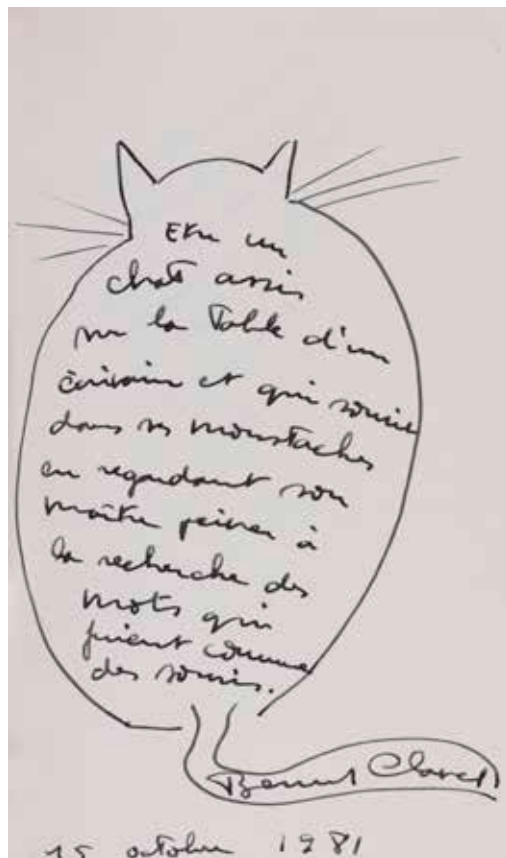 Etre un
chat assis
sur la Table d'un
écrivain et qui sourie
dans ses moustaches
en regardant son
maître peiner à
la recherche des
mots qui
fuient comme
des souris.
Bernard Clavel
15 octobre 1981